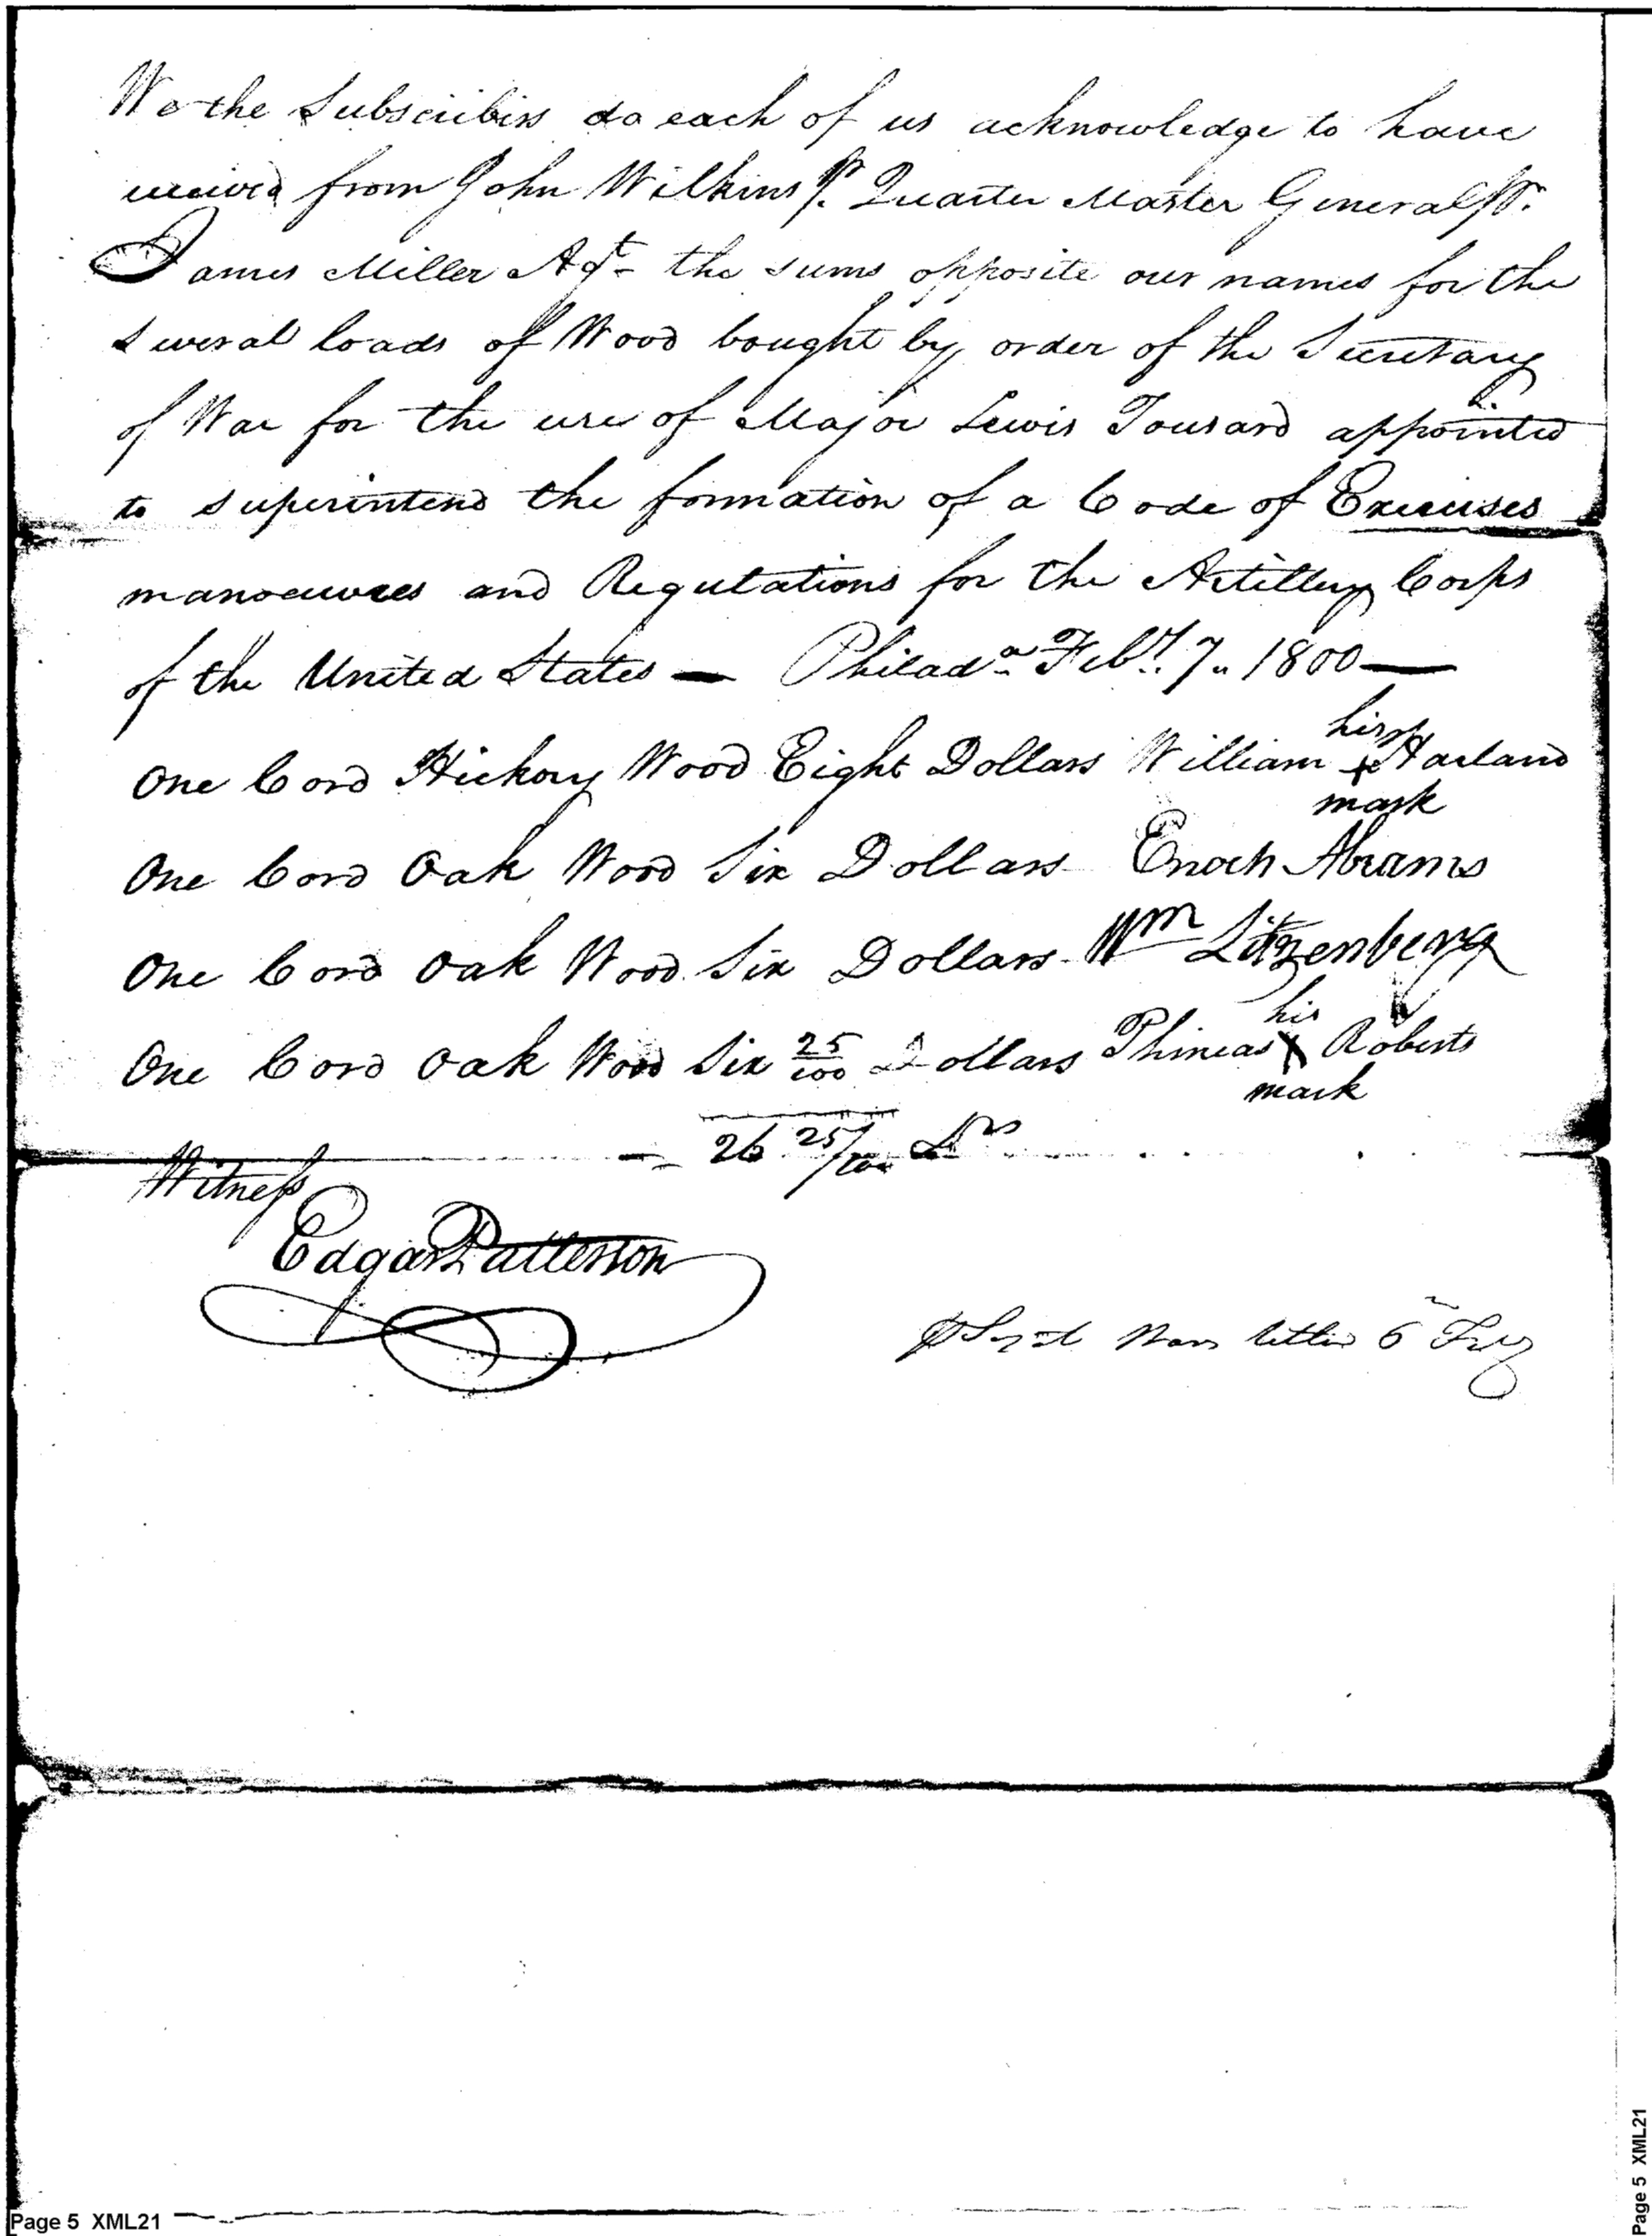 We the Subscribers do each of us acknowledge to have
received from John Wilkins Jr. Quarter Master General pr.
James Miller Agt. the sums opposite our names for the
several loads of Wood bought by order of the Secretary
of War for the use of Major Lewis Tousard appointed
to superintend the formation of a Code of Exercises
manoeuvres and Regulations for the Artillery Corps
of the United States — Philada. Feby. 7. 1800 —
his
One Cord Hickory Wood Eight Dollars William x Harland
mark
One Cord Oak Wood Six Dollars Enoch Abrams
One Cord Oak Wood Six Dollars Wm Litzenberg
his
One Cord Oak Wood Six 25/100 Dollars Phineas X Roberts
mark
26 25/100 Drs
Witness
Edgar Patterson
War letter 6
Page 5 XML21
Page 5 XML21